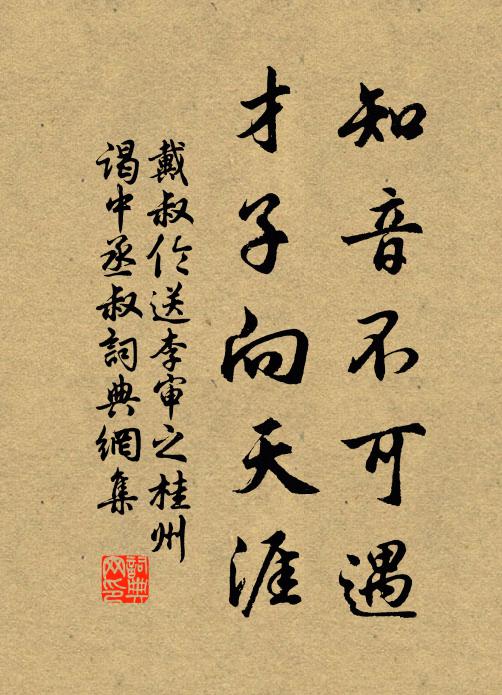 知音不可遇
才子向天涯
戴叔伦送李审之桂州
谒中丞叔詞典網集
詞典
网印